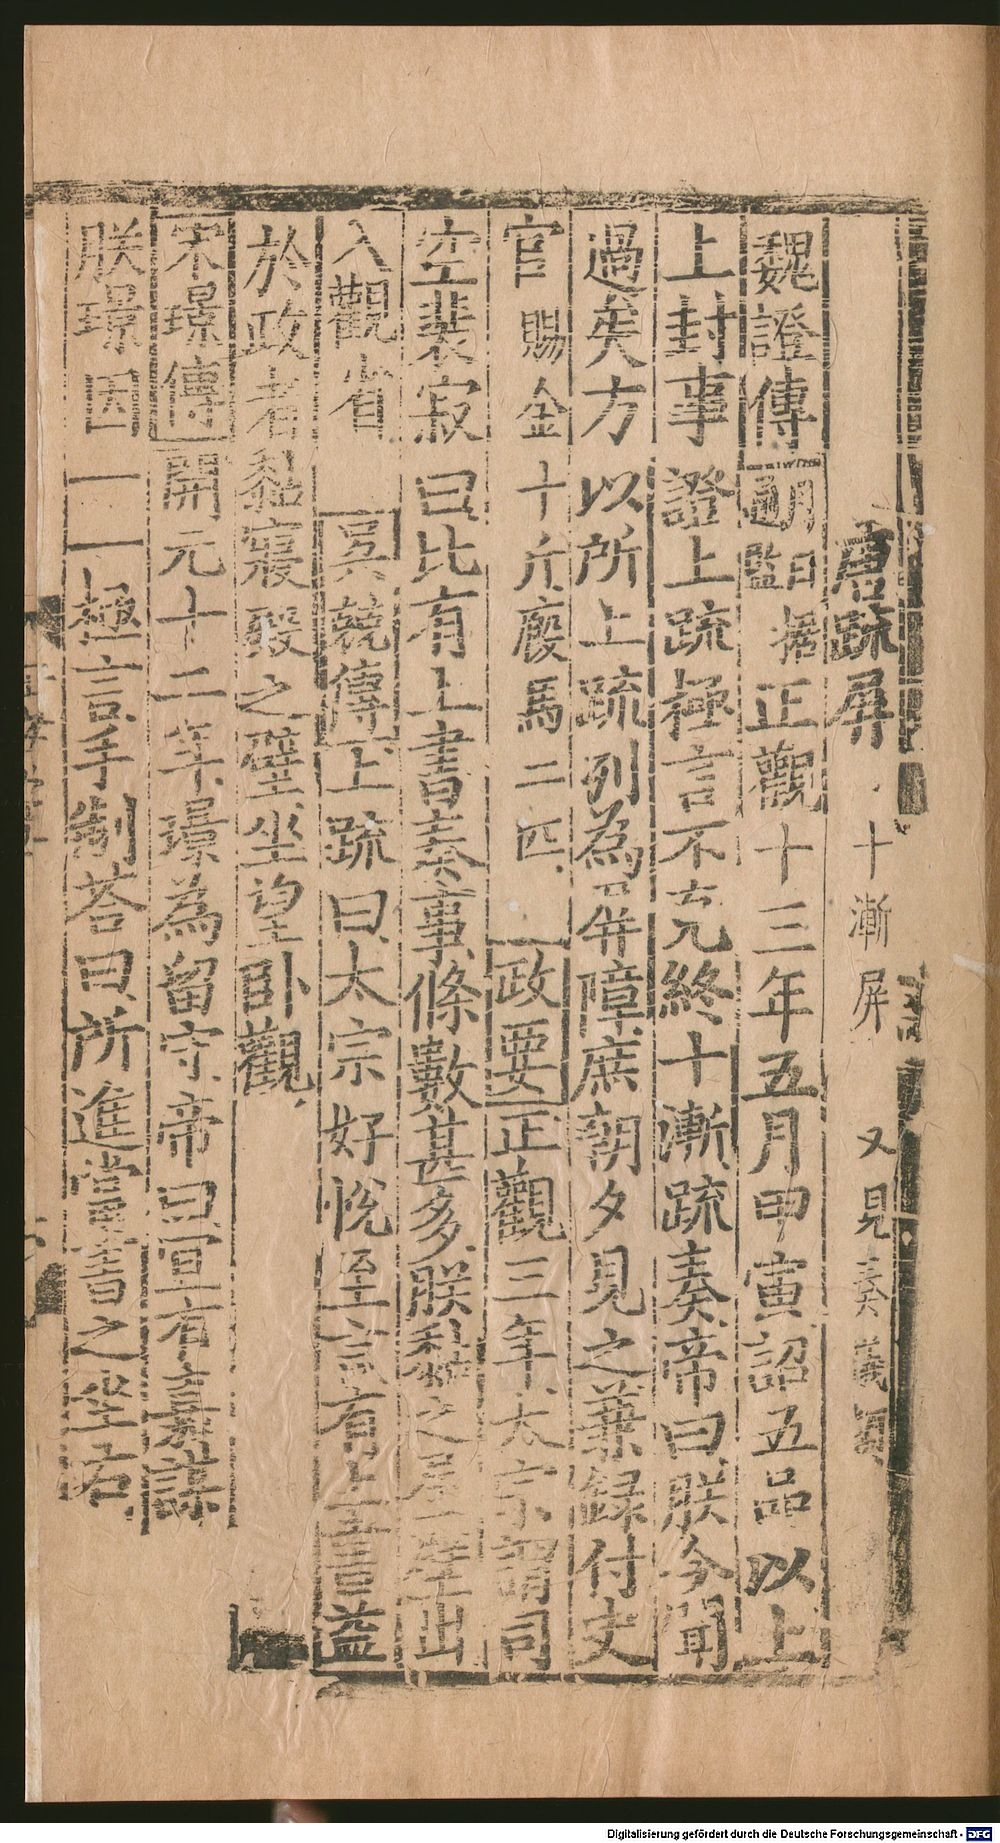 唐疏屏 十漸屏 又見奏議類
魏證傳 正觀十三年五月甲寅詔五品以上
上封事證上疏極言不克終十漸疏奏帝曰朕今聞
過矣方以所上疏列為屏障庶朝夕見之兼録付史
官賜金十斤廄馬二匹政要正觀三年太宗謂司
空裴寂曰比有上書奏事條數甚多朕黏之屋壁出
入觀省吳兢傳上疏曰太宗好悅至言有上書益
於政者黏寢殿之壁坐望卧觀
宋璟傳開元十二年璟為留守帝曰宜有嘉謀
朕璟因一一極言手制荅曰所進當書之坐右
Digitalisierung gefördert durch die Deutsche Forschungsgemeinschaft - DFG